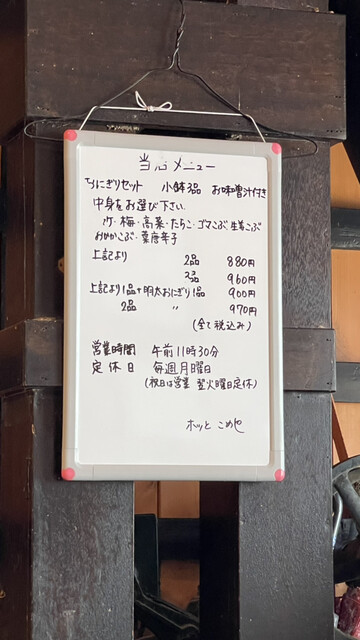 当店メニュー
おにぎりセット 小鉢3品 お味噌汁付き
中身をお選び下さい。
梅・高菜・たらこ・ゴマこぶ 生姜こぶ
おかかこぶ・葉唐辛子
上記より 2品 880円
3品 960円
上記より1品+明太おにぎり1品 900円
2品 〃 970円
(全て税込み)
営業時間 午前11時30分
定休日 毎週月曜日
(祝日は営業 翌火曜日定休)
ホッと こめや